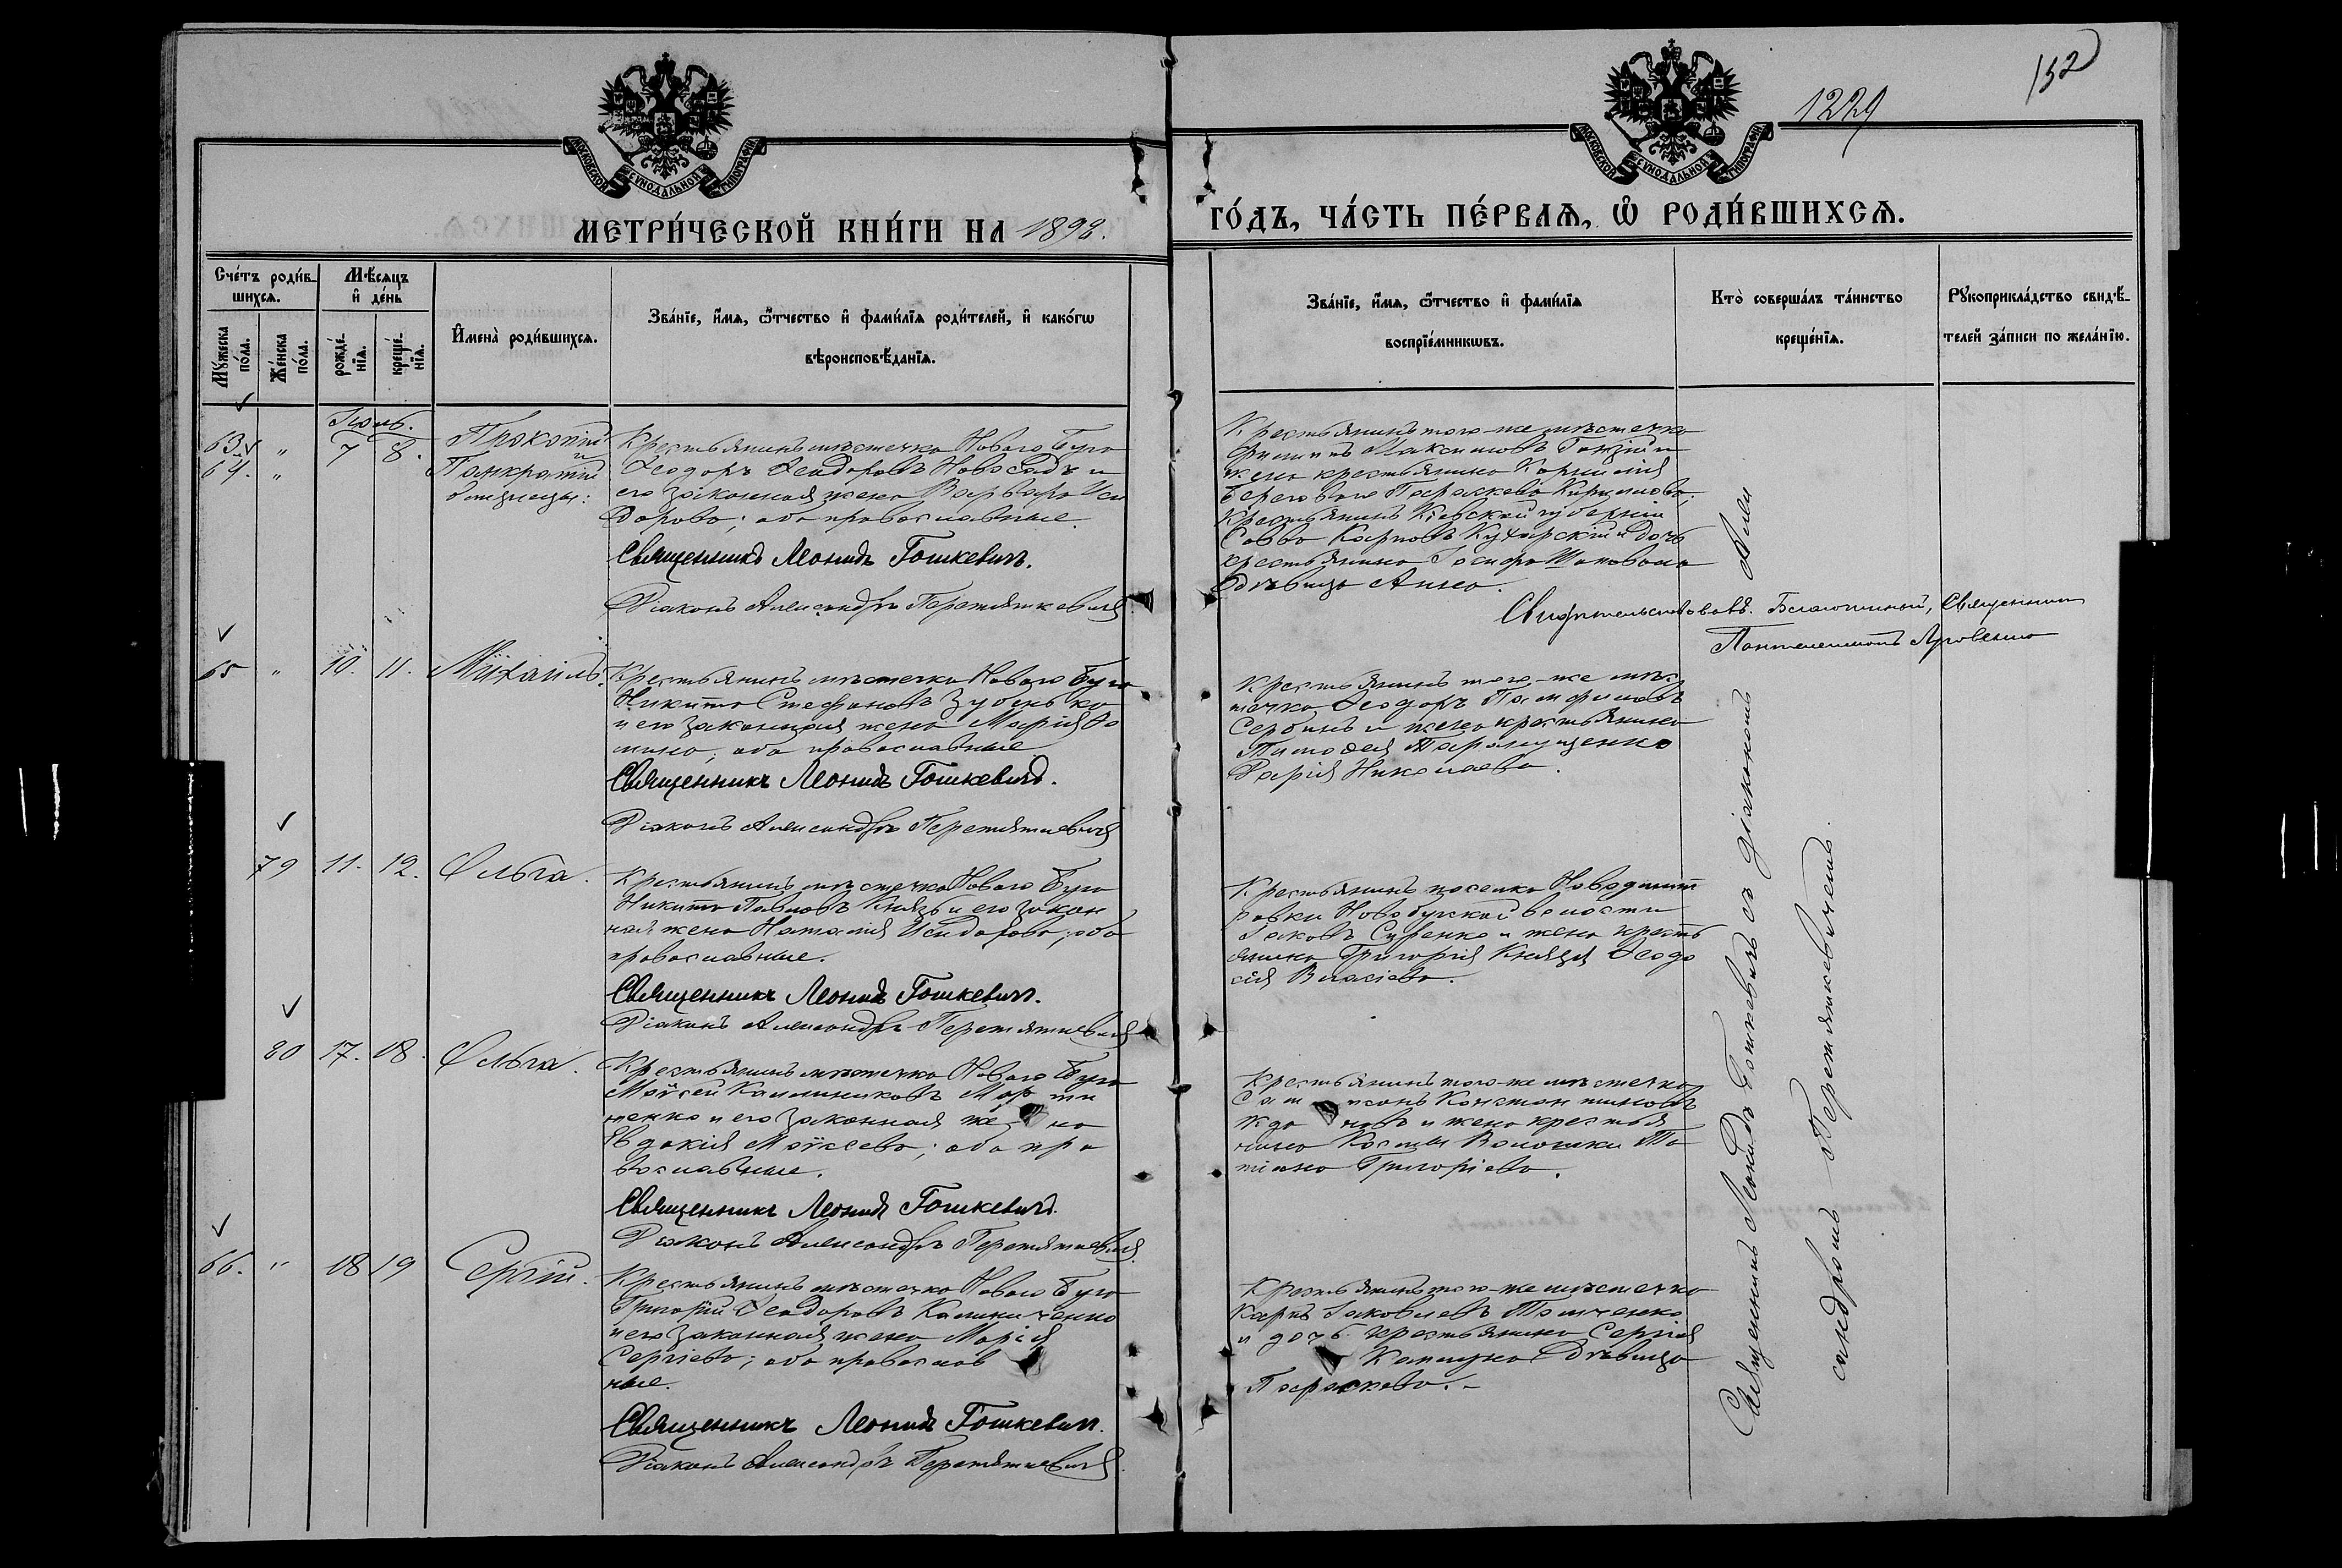 152
1229
МОСКОВСКОЙ СУНОДАЛЬНОЙ ТИПОГРАФІИ
МОСКОВСКОЙ СУНОДАЛЬНОЙ ТИПОГРАФІИ
МЕТРИ́ЧЕСКОЙ КНИ́ГИ НА 1898.
ГО́ДЪ, ЧА́СТЬ ПЕ́РВАѦ, Ѽ РОДИ́ВШИХСѦ.
Сче́тъ роди́в-
шихсѧ.
Мѣ́сѧцъ
и҆ де́нь
Мꙋ́жеска
по́ла.
Же́нска
по́ла.
рожде́-
нїѧ.
креще́-
нїѧ.
И҆мена̀ роди́вшихсѧ.
Зва́нїе, и҆́мѧ, ѻ҆́тчество и҆ фами́лїѧ роди́телей, и҆ како́гѡ
вѣроисповѣ́данїѧ.
Зва́нїе, и҆́мѧ, ѻ҆́тчество и҆ фами́лїѧ
воспрїе́мникѡвъ.
Кто̀ соверша́лъ та́инство
креще́нїѧ.
Рꙋкоприкла́дство свидѣ́-
телей за́писи по жела́нїю.
Іюль.
63. " 7 8. Прокопій
и
64. " Панкратій
близнецы:
Крестьянинъ мѣстечка Новаго Буга
Ѳеодоръ Ѳеодоровъ Новосадъ и
его законная жена Варвара Иси
дорова; оба православные.
Священникъ Леонидъ Гошкевичъ.
Діаконъ Александръ Перетяткевичъ
Крестьянинъ того-же мѣстечка
Филиппъ Максимовъ и
жена крестьянина Корнилія
Берегового Параскева Кирилова;
Крестьянинъ Кіевской губерніи
Савва Карповъ Кухарскій и дочь
крестьянина Іосифа Шаповала
дѣвица Анна.
Свидѣтельствовалъ. Благочинный, Священникъ
Пантелеимонъ Луговенко
65 " 10. 11. Михаилъ.
Крестьянинъ мѣстечка Новаго Буга
Никита Стефановъ Зубенько
и его законная жена Марія Ѳо
мина, оба православные
Священникъ Леонидъ Гошкевичъ.
Діаконъ Александръ Перетяткевичъ
Крестьянинъ того-же мѣс
течка Ѳеодоръ Памфиловъ
Сербинъ и жена крестьянина
Тимоѳея Тарануценко
Дарія Николаева.
79 11. 12. Ольга.
Крестьянинъ мѣстечка Новаго Буга
Никита Павловъ Князь и его закон
ная жена Наталія Исидорова; оба
православные.
Священникъ Леонидъ Гошкевичъ.
Діаконъ Александръ Перетяткевичъ
Крестьянинъ поселка Новодмит
ровки Новобугской волости
Іаковъ Суренко и жена кресть
янина Григорія Князя Ѳеодо
сія Власіева.
80 17. 18. Ольга.
Крестьянинъ мѣстечка Новаго Буга
Моѵсей Каллиниковъ Марти
ненко и его законная жена
Евдокія Моѵсеева; оба пра
вославные.
Священникъ Леонидъ Гошкевичъ.
Діаконъ Александръ Перетяткевичъ
Крестьянинъ того-же мѣстечка
Сампсонъ Константиновъ
Ждановъ и жена крестья
нина Космы Волошки Та
тіана Григоріева.
66. " 18 19 Сергій.
Крестьянинъ мѣстечка Новаго Буга
Григорій Ѳеодоровъ Калиниченко
и его законная жена Марія
Сергіева; оба православ
ные.
Священникъ Леонидъ Гошкевичъ.
Діаконъ Александръ Перетяткевичъ
Крестьянинъ того-же мѣстечка
Карпъ Іаковлевъ Томченко
и дочь крестьянина Сергія
дѣвица
Параскева.
Священникъ Леонидъ Гошкевичъ съ діакономъ Алек
сандромъ Перетяткевичемъ.